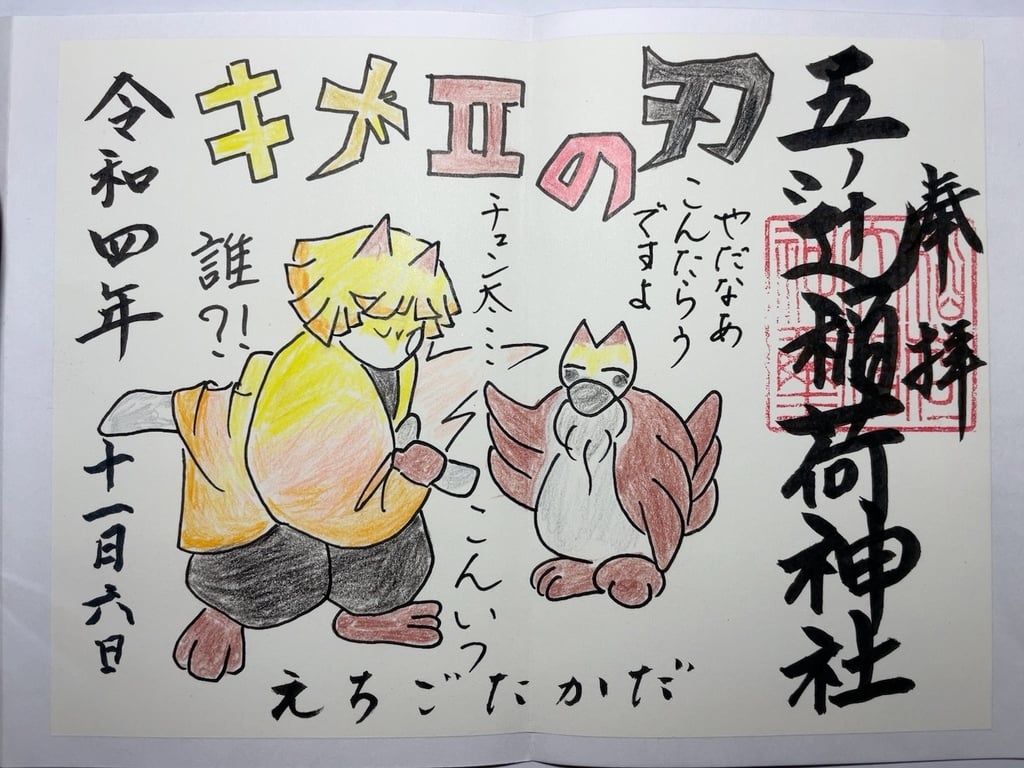 奉拝
五ノ辻稲荷神社
キメⅡの刃
やだなあ
こんたろう
ですよ
チュン太…
こんいつ
誰?!
えちごたかだ
令和四年
十一月六日